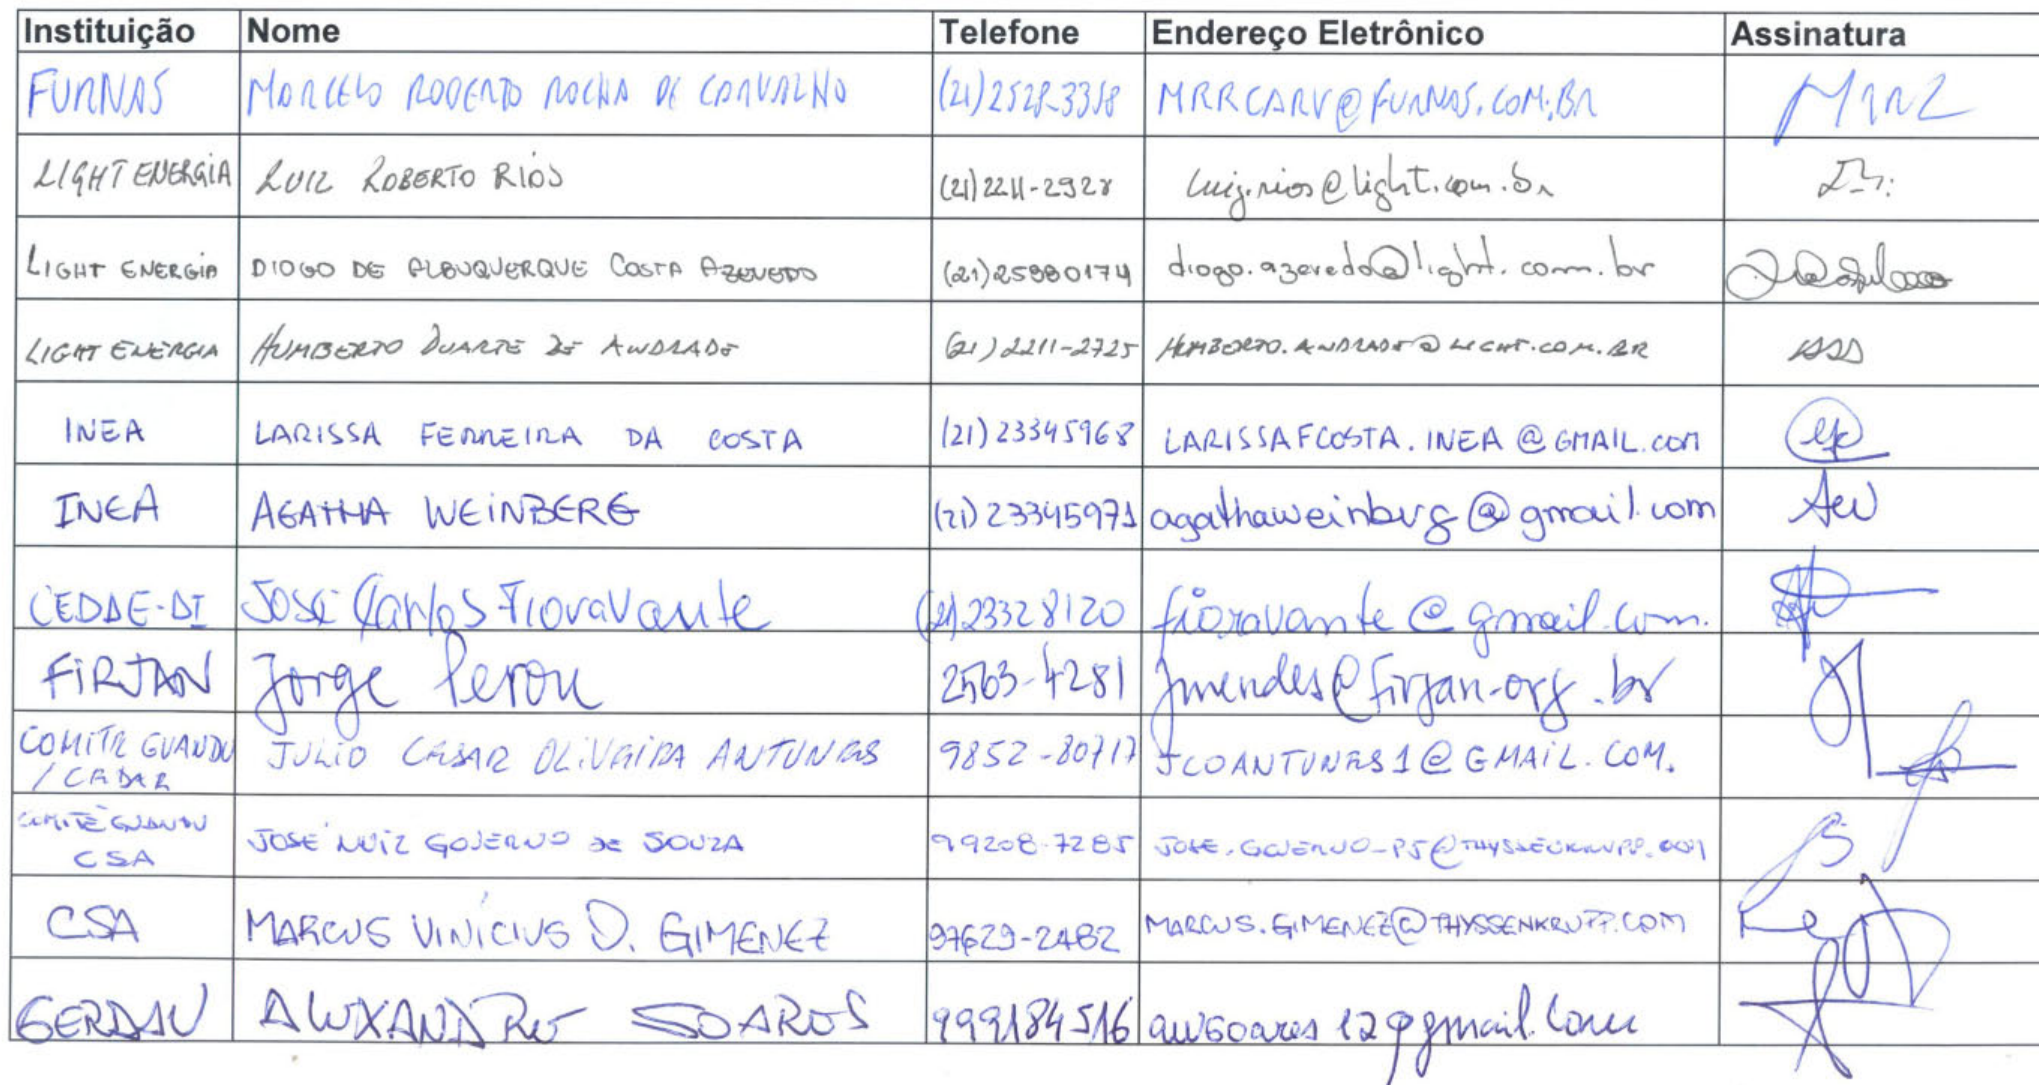 Instituição Nome Telefone Endereço Eletrônico Assinatura
FURNAS MARCELO ROBERTO ROCHA DE CARVALHO (21)2528-3358 MRRCARV@FURNAS.COM.BR
LIGHT ENERGIA LUIZ ROBERTO RIOS (21)2211-2928 luiz.rios@light.com.br
LIGHT ENERGIA DIOGO DE ALBUQUERQUE COSTA AZEVEDO (21)25980174 diogo.azevedo@light.com.br
LIGHT ENERGIA HUMBERTO DUARTE DE ANDRADE (21)2211-2725 HUMBERTO.ANDRADE@LIGHT.COM.BR
INEA LARISSA FERREIRA DA COSTA (21)23345968 LARISSAFCOSTA.INEA@GMAIL.COM
INEA AGATHA WEINBERG (21)23345971 agathaweinberg@gmail.com
CEDAE-DI José Carlos Fioravante (21)23328120 fioravante@gmail.com.
FIRJAN Jorge Peron 2563-4281 jmendes@firjan.org.br
COMITE GUANDU JULIO CESAR OLIVEIRA ANTUNES 9852-80717 JCOANTUNES1@GMAIL.COM.
/CEDAE
COMITÊ GUANDU JOSÉ LUIZ GOVERNO DE SOUZA 99208-7285 JOSE.GOVERNO-PS@THYSSENKRUPP.COM
CSA
CSA MARCUS VINÍCIUS D. GIMENEZ 97629-2482 MARCUS.GIMENEZ@THYSSENKRUPP.COM
GERDAU ALEXANDRE SOARES 999184516 alesoares12@gmail.com